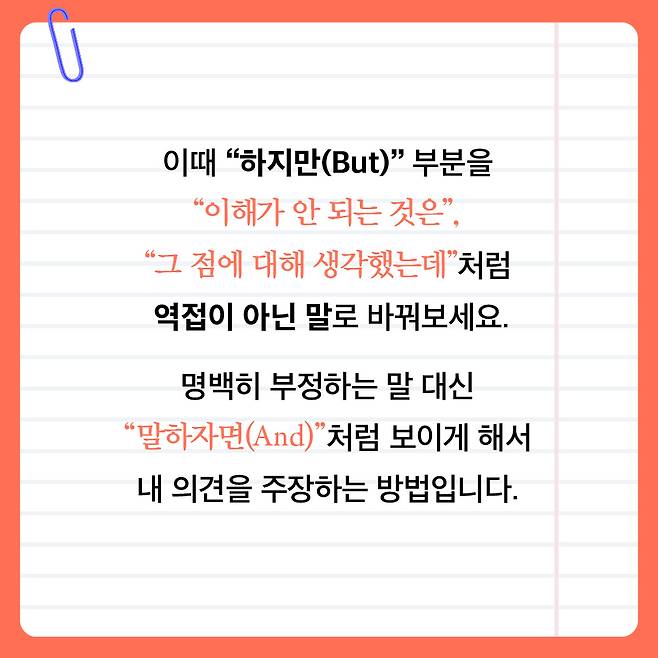 이때 “하지만(But)” 부분을
“이해가 안 되는 것은”,
“그 점에 대해 생각했는데”처럼
역접이 아닌 말로 바꿔보세요.
명백히 부정하는 말 대신
“말하자면(And)”처럼 보이게 해서
내 의견을 주장하는 방법입니다.